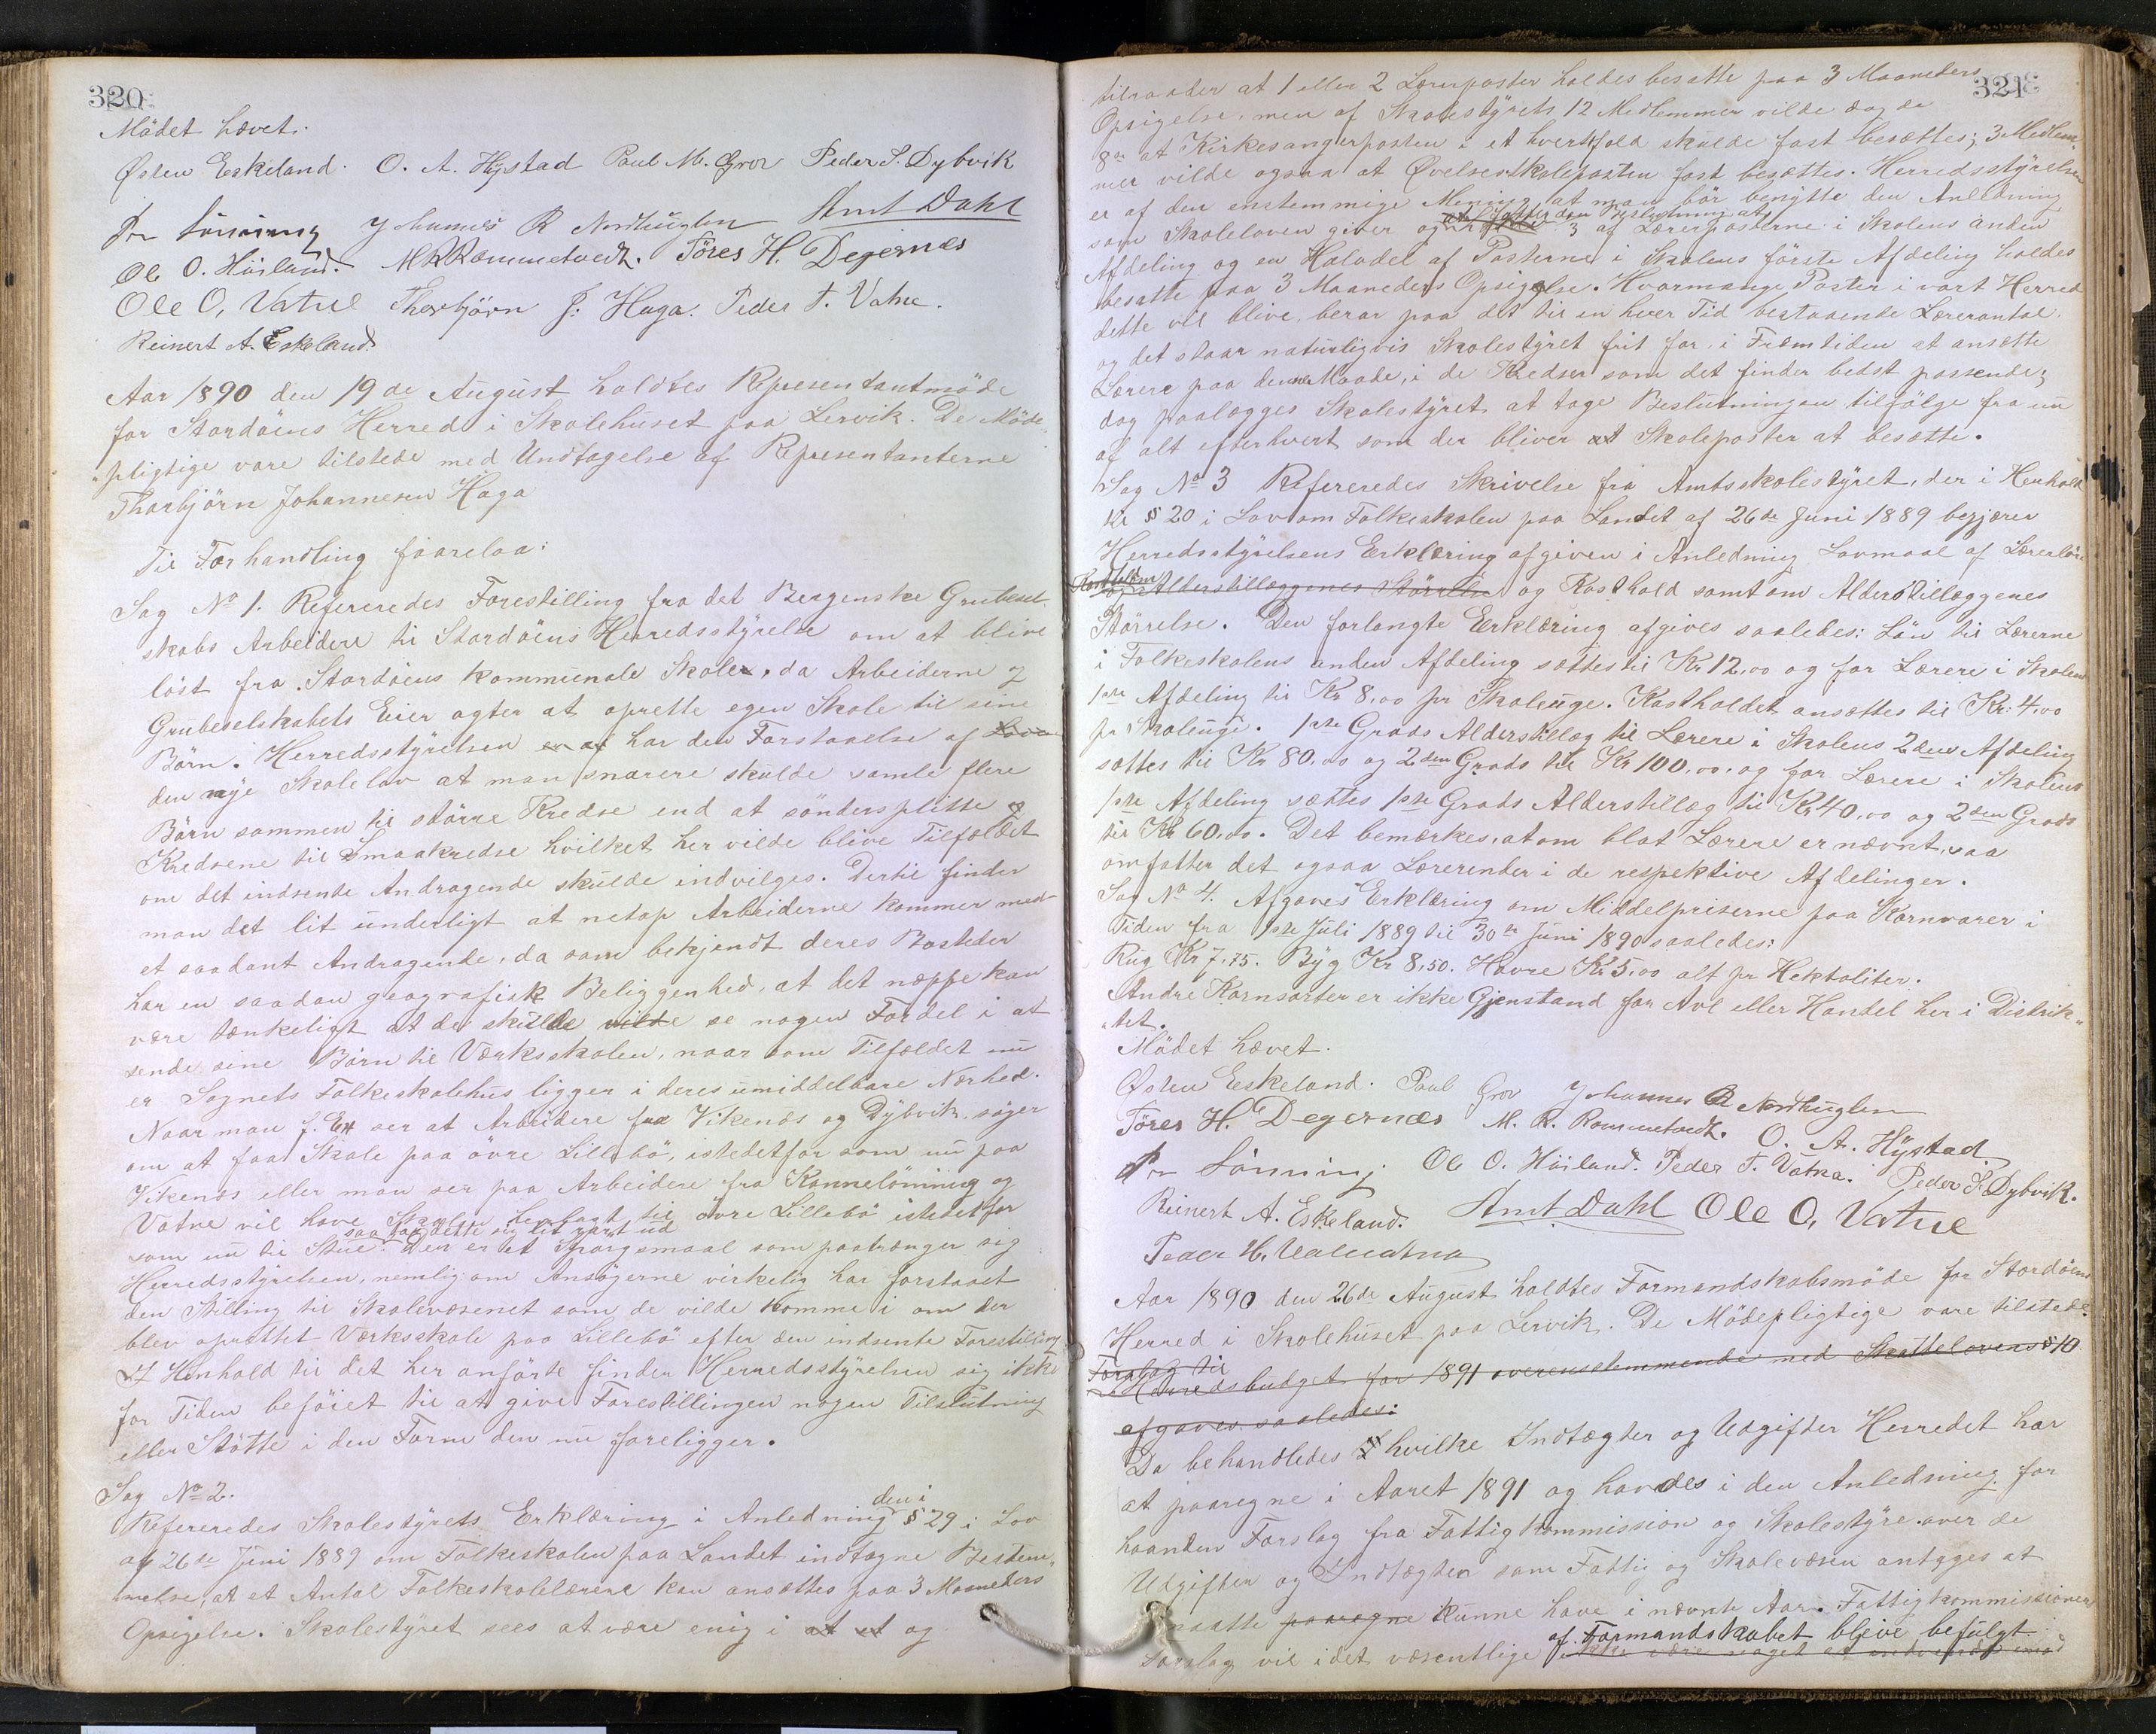 320
Mödet hævet.
Østen Eskeland. O. A. Hystad Paul M. Grov Peder S. Dybvik
Per Lönning Johannes R Nordhuglen Amt Dahl
Ole O. Hüsland. M R Rommetvedt. Töres H. Degernes
Ole O, Vatne Thorbjörn J. Haga. Peder T. Vatne.
Reinert A. Eskeland.
Aar 1890 den 19de August holdtes Representantmöde
for Stordöens Herred i Skolehuset paa Lervik. De Möde
pligtige vare tilstede med Undtagelse af Representanterne
Thorbjörn Johannesen Haga
Til Forhandling foorelaa:
Sag No 1. Refereredes Forestilling fra det Bergenske Grubesel-
skabs Arbeidere til Stordöens Herredsstyrelse om at blive
löst fra Stordöens kommunale Skole, da Arbeiderne og
Grubeselskabets Eier agter at oprette egen Skole til sine
Börn. Herredsstyrelsen er af har den Forstaaelse af Loven
den nye Skolelov at man snarere skulde samle flere
Börn sammen til större Kredse end at söndersplitte
Kredsene til Smaakredse hvilket her vilde blive Tilfældet
om det indsente Andragende skulde indvilges. Dertil finder
man det lit underligt at netop Arbeiderne kommer med
et saadant Andragende, da som bekjendt deres Bosteder
har en saadan geografisk Beliggenhed, at det neppe kan
være tænkeligt at de skulde vilde se nogen Fordel i at
sende sine Börn til Værksskolen, naar som Tilfældet nu
er Sognets Folkeskolehus ligger i deres umiddelbare Nærhed.
Naar man f. Ex ser at Arbeidere fra Vikenæs og Dybvik söger
om at faa Skole paa övre Lillebö, istedetfor som nu paa
Vikenæs eller man ser paa Arbeidere fra Kannelönning og
Vatne vil have Skolen henlagt til övre Lillebö istedetfor
saa tar dette sig lit rart ud
som nu til Stue. Der er et Spörgsmaal som paatrænger sig
Herredsstyrelsen, nemlig om Ansögerne virkelig har forstaaet
den Stilling til Skolevæsenet som de vilde komme i om der
blev oprettet Værksskole paa Lillebö efter den indsente Forestilling
I Henhold til det her anförte finder Herredsstyrelsen sig ikke
for Tiden beföiet til at give Forestillingen nogen Tilslutning
eller Stötte i den Form den nu foreligger.
Sag No 2.
den i
Refereredes Skolestyrets Erklæring i Anledning § 29 i Lov
af 26de Juni 1889 om Folkeskolen paa Landet indtagne Bestem-
melse, at et Antal Folkeskolelærere kan ansættes paa 3 Maaneders
Opsigelse. Skolestyret sees at være enig i at et og
321
tilraader at 1 eller 2 Lærerposter holdes besatte paa 3 Maaneders
Opsigelse, men af Skolestyrets 12 Medlemmer vilde dog de
8de at Kirkesangerposten i et hvertfald skulde fast besættes; 3 Medlem-
mer vilde ogsaa at Øvelsesskoleposten fast besættes. Herredsstyrelsen
er af den enstemmige Mening, at man bör benytte den Anledning
fatter den Beslutning at
som Skoleloven giver og 3 af Lærerposterne i Skolens anden
Afdeling og en Halvdel af Posterne i Skolens förste Afdeling holdes
besatte paa 3 Maaneders Opsigelse. Hvormange Poster i vort Herred
dette vil blive beror paa det til en hver Tid bestaaende Lærerantal.
og det staar naturligvis Skolestyret frit for, i Fremtiden at ansætte
Lærere paa denne Maade, i de Kredser som det finder bedst passende;
dog paalægges Skolestyret at tage Beslutningen tilfölge fra nu
af alt efterhvert som der bliver at Skoleposter at besætte.
Sag No 3 Refereredes Skrivelse fra Amtsskolestyret, der i Henhold
til §§ 20 i Lov om Folkeskolen paa Landet af 26de Juni 1889 begjærer
Herredsstyrelsens Erklæring afgiven i Anledning Lovmaal af Lærerlön
Alderstillæggenes Störrelse og Kosthold samt om Alderstillæggenes
Störrelse. Den forlangte Erklæring afgives saaledes: Lön til Lærerne
i Folkeskolens anden Afdeling sættes til Kr 12,00 og for Lærere i Skolens
1ste Afdeling til Kr 8,00 pr Skoleuge. Kostholdet ansættes til Kr. 4,00
pr Skoleuge. 1ste Grads Alderstillæg til Lærere i Skolens 2den Afdeling
sættes til Kr 80.00 og 2den Grads til Kr 100,00. og for Lærere i Skolens
1ste Afdeling sættes 1ste Grads Alderstillæg til Kr 40,00 og 2den Grads
til Kr 60.00. Det bemærkes, at om blot Lærere er nævnt, saa
omfatter det ogsaa Lærerinder i de respektive Afdelinger.
Sag No 4. Afgaves Erklæring om Middelpriserne paa Kornvarer i
Tiden fra 1ste Juli 1889 til 30te Juni 1890 saaledes:
Rug Kr 7,75. Byg Kr 8,50. Havre Kr 5,00 alt pr Hektoliter.
Andre Kornsorter er ikke Gjenstand for Avl eller Handel her i Distrik-
tet.
Mödet hævet.
Østen Eskeland. Paul Grov Johannes R Nordhuglen
Töres H. Degernæs M. R. Rommetvedt. O. A. Hystad
Per Lönning. Ole O. Hüsland. Peder T. Vatna. Peder S. Dybvik.
Reinert A. Eskeland. Amt Dahl Ole O, Vatne
Peder H. Valvatna
Aar 1890 den 26de August holdtes Formandskabsmöde for Stordöens
Herred i Skolehuset paa Lervik. De Mödepligtige vare tilstede.
Forslag til
Herredsbudget for 1891 overensstemmende med Skattelovens § 10
afgaves saaledes:
Da behandledes hvilke Indtægter og Udgifter Herredet har
at paaregne i Aaret 1891 og havdes i den Anledning for
haanden Forslag fra Fattigkommission og Skolestyre over de
Udgifter og Indtægter som Fattig og Skolevæsen antages at
maatte paaregne kunne have i nævnte Aar. Fattigkommissionens
af Formandskabet blive befulgt
Forslag vil i det væsentlige